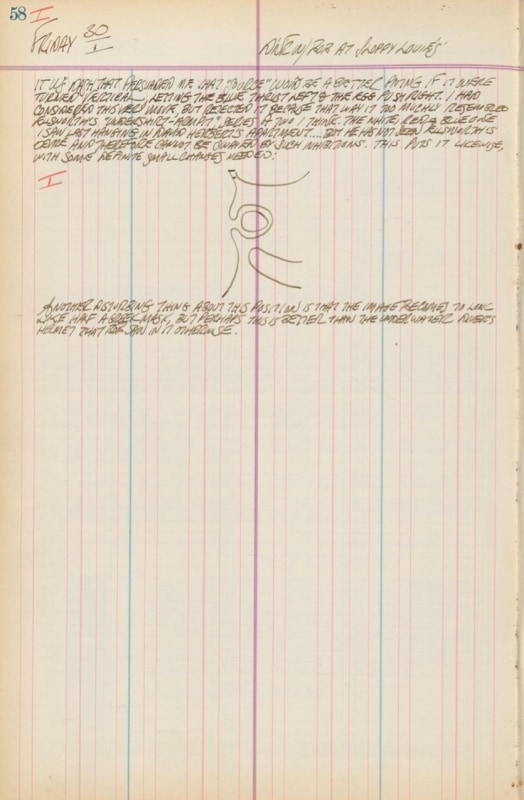 58 I
FRIDAY 30/I DINE W/ BOB AT SLOPPY LOUIE'S
IT WAS THAT PERSUADED ME THAT " " WOULD BE A BETTER PTING. IF IT WERE
TURNED VERTICAL... LETTING THE BLUE THRUST LEFT & THE RED PUSH RIGHT. I HAD
CONSIDERED THIS VERY MOVE BUT REJECTED IT BECAUSE THAT WAY IT TOO MUCH RESEMBLED
ELLSWORTH'S " " SERIES OF TWO I THINK. THE WHITE, RED & BLUE ONE
I SAW LAST HANGING IN DAVID HERBERT'S APARTMENT... BUT HE HAS NOT SEEN ELLSWORTH'S
AND THEREFORE CANNOT BE SWAYED BY SUCH INHIBITIONS. THIS PUTS IT LIKEWISE,
WITH SOME DEFINITE SMALL CHANGES NEEDED:
I
ANOTHER DISTURBING THING ABOUT THIS POSITION IS THAT THE IMAGE BECOMES TO LOOK
LIKE HALF A GREEK MASK, BUT PERHAPS THIS IS BETTER THAN THE UNDERWATER DIVER'S
HELMET THAT BOB SAW IN IT OTHERWISE.